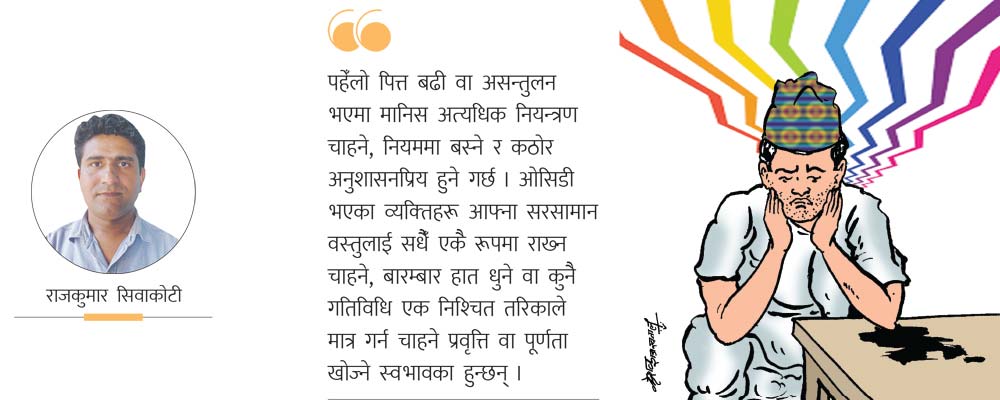 राजकुमार सिवाकोटी
पहेँलो पित्त बढी वा असन्तुलन
भएमा मानिस अत्यधिक नियन्त्रण
चाहने, नियममा बस्ने र कठोर
अनुशासनप्रिय हुने गर्छ । ओसिडी
भएका व्यक्तिहरू आफ्ना सरसामान
वस्तुलाई सधैँ एकै रूपमा राख्न
चाहने, बारम्बार हात धुने वा कुनै
गतिविधि एक निश्चित तरिकाले
मात्र गर्न चाहने प्रवृत्ति वा पूर्णता
खोज्ने स्वभावका हुन्छन् ।